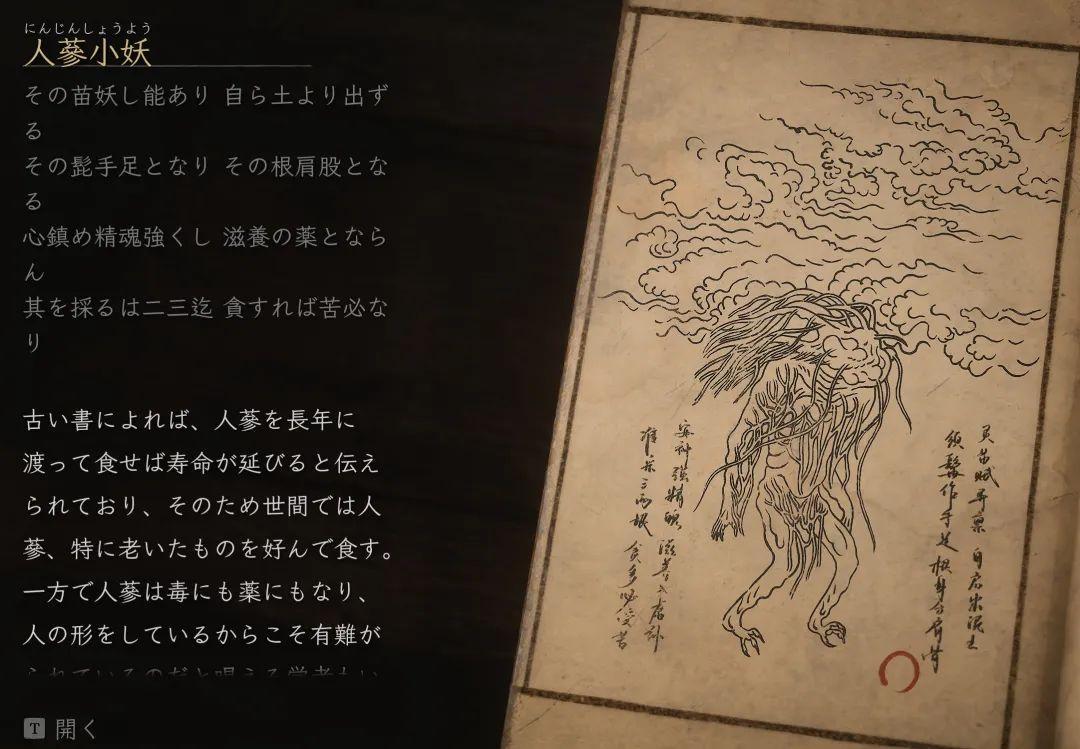 にんじんしょうよう
人蔘小妖
その苗妖し能あり 自ら土より出ず
る
その髭手足となり その根肩股とな
る
心鎮め精魂強くし 滋養の薬となら
ん
其を採るは二三迄 貪すれば苦必な
り
古い書によれば、人蔘を長年に
渡って食せば寿命が延びると伝え
られており、そのため世間では人
蔘、特に老いたものを好んで食す。
一方で人蔘は毒にも薬にもなり、
人の形をしているからこそ有難が
られているのだと唱える学者もい
T 開く
安神強精魄 滋養